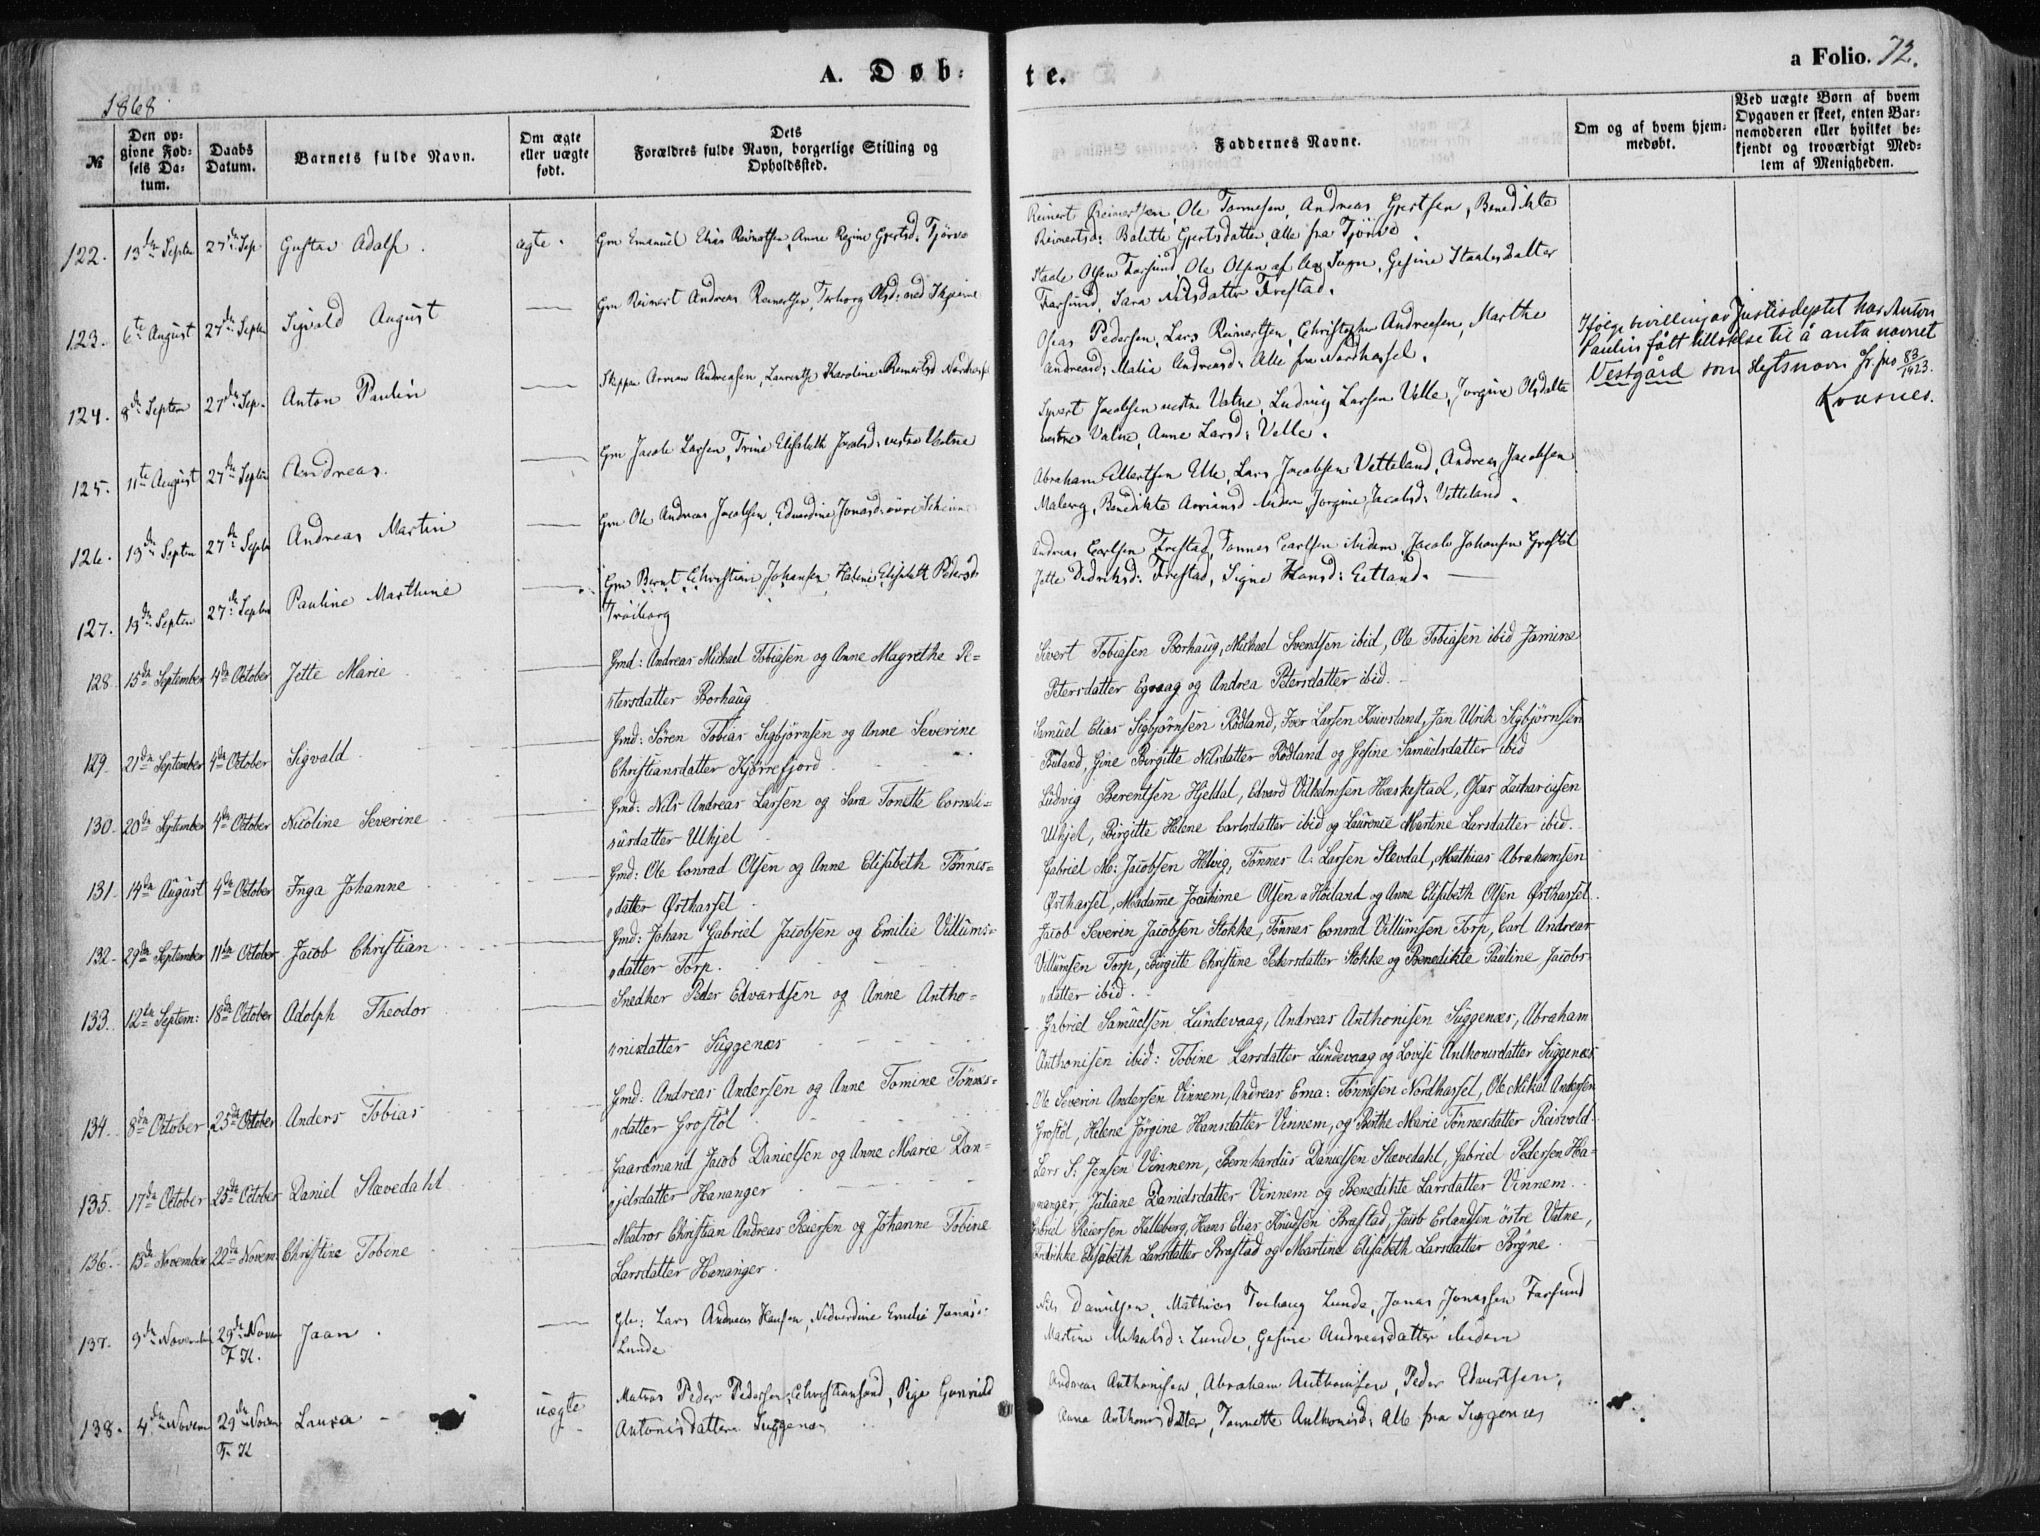 A. Døb-
te.
a Folio. 72.
1868
№
Den opgivne Fødsels Datum.
Daabs Datum.
Barnets fulde Navn.
Om ægte eller uægte født.
Dets Forældres fulde Navn, borgerlige Stilling og Opholdssted.
Faddernes Navne.
Om og af hvem hjemmedøbt.
Ved uægte Børn af hvem Opgaven er skeet, enten Barnemoderen eller hvilket bekjendt og troværdigt Medlem af Menigheden.
122. 13de Septer 27de Sep Gustav Adolf. ægte. Gm Emanuel Elias Reinertsen, Anne Regine Gjertsd: Tjørve
Reinert Reinertsen, Ole Tønnesen, Andreas Gjertsen, Benedikte
Reinertsd: Bolette Gjertsdatter, alle fra Tjørve.
123. 6te August 27de Septer Sigvald August Gm Reinert Andreas Reinertsen, Torborg Olsd: ned Skjeime
Staale Olsen Farsund, Ole Olsen af Sogn, Gesine Staalesdatter
Farsund, Sara Nilsdatter Frestad.
124. 8de Septer 27de Sep. Anton Paulin Skipper Arrian Andreasen, Laurentse Karoline Reinertsd Nordhassel
Oseas Pedersen, Lars Reinertsen, Christopher Andreasen, Marthe
Andreasd: Malia Andreasd: Alle fra Nordhassel.
Ifølge bevilling av Justisdeptet har Anton
Paulin fått tillatelse til å anta navnet
Vestgård som slegtsnavn jfr. jno 83/1923.
Kvasnes.
125. 11te August 27de Septer Andreas. Gm Jacob Larsen, Trine Elisabeth Jacobsd: vestre Vatne
Syvert Jacobsen vestre Vatne, Ludvig Larsen Velle, Jorgine Olsdatter
vestre Vatne, Anne Larsd: Velle.
126. 13de Septer 27de Septer Andreas Martin Gm Ole Andreas Jacobsen, Eduardine Jonasd: øvre Skeime
Abraham Albertsen Elle, Lars Jacobsen Vetteland, Andreas Jacobsen
Maberg, Benedikte Arriansd ibidem, Jorgine Jacobsd: Vetteland.
127. 13de Septer 27de Septer Pauline Marthine Gm Bernt Christian Johansen, Helene Elisabeth Pedersd:
Trøiborg
Andreas Carlsen Frestad, Tønnes Carlsen ibidem, Jacob Johansen Grostøl
Jette Didriksd: Frestad, Signe Hansd: Eitland.
128 15de September 4de October Jette Marie Gmd: Andreas Michael Tobiasen og Anne Magrethe Pe-
tersdatter Borhaug
Sivert Tobiasen Borhaug, Michael Svendsen ibid, Ole Tobiasen ibid Jamine
Petersdatter Egvaag og Andrea Petersdatter ibid.
129. 21de September 4de October Sigvald Gmd: Søren Tobias Sigbjørnsen og Anne Severine
Christiansdatter Kjørrefjord
Samuel Elias Sigbjørnsen Rødland, Iver Larsen Knivsland, Jan Ulrik Sigbjørnsen
Buland, Gine Birgitte Nilsdatter Rødland og Gesine Samuelsdatter ibid
130. 20de September 4de October Nicoline Severine Gmd: Nils Andreas Larsen og Sara Tonette Corneli-
usdatter Ulhjel
Ludvig Berentsen Hjeldal, Edvard Vilhelmsen Haskestad, Oseas Zachariasen
Ulhjel, Birgitte Helene Carlsdatter ibid og Laurence Martine Larsdatter ibid.
131. 14de August 4de October Inga Johanne Gmd: Ole Conrad Olsen og Anne Elisabeth Tønnes-
datter Østhassel
Gabriel M: Jacobsen Helvig, Tønnes A: Larsen Slevdal, Mathias Abrahamsen
Østhassel, Madame Joachime Olsen a Hoiland og Anne Elisabeth Olsen Østhassel.
132. 29de September 11te October Jacob Christian Gmd: Johan Gabriel Jacobsen og Emilie Villums-
datter Torp.
Jacob Severin Jacobsen Stokke, Tønnes Conrad Villumsen Torp, Carl Andreas
Villumsen Torp, Birgitte Christine Pedersdatter Stokke og Benedikte Pauline Jacobs-
datter ibid.
133. 12te Septem: 18de October Adolph Theodor Snedker Peder Edvardsen og Anne Antho-
nisdatter Siggenæs
Gabriel Samuelsen Lundevaag, Andreas Anthonisen Siggenæs, Abraham
Anthonisen ibid: Tobine Larsdatter Lundevaag og Lovise Anthonisdatter Siggenæs
134. 8de October 25de October Anders Tobias Gmd: Andreas Andersen og Anne Tomine Tønnes-
datter Grostøl
Ole Severin Andersen Vinnem, Andreas Ema: Tønnesen Nordhassel, Ole Mikal Andersen
Grostøl, Helene Jørgine Hansdatter Vinnem, og Berthe Marie Tønnesdatter Reisvold
135. 17de October 25de October Daniel Slævedahl Gaardmand Jacob Danielsen og Anne Marie Dan-
jelsdatter Hananger
Lars S: Jensen Vinnem, Bernhardus Danielsen Slævedahl, Gabriel Pedersen Ha-
nanger, Juliane Danielsdatter Vinnem og Benedikte Larsdatter Vinnem.
136. 13de November 22de Novem. Christine Tobine Matros Christian Andreas Reiersen og Johanne Tobine
Larsdatter Hananger.
Gabriel Reiersen Kalleberg, Hans Elias Knudsen Brastad, Jacob Erlandsen østre Vatne,
Fredrikke Elisabeth Larsdatter Brastad og Martine Elisabeth Larsdatter Bryne
137. 9de November 29de Novem F. K. Jaan. Lars Andreas Hansen, Nidverdine Emilie Jonasd:
Lunde
Nils Danielsen, Mathias Tvehaug Lunde, Jonas Jonassen Farsund
Martine Mekalsd: Lunde, Gesine Andreasdatter ibidem
138. 4de Novem 29de Novem F. K Laura uægte Matros Peder Pedersen Christiansund, Pige Gunvald
Antonisdatter Siggenæs
Andreas Anthonisen, Abraham Anthonisen, Peder Edvartsen,
Anna Anthonisdatter, Tonnette Anthonisd: Alle fra Siggenæs